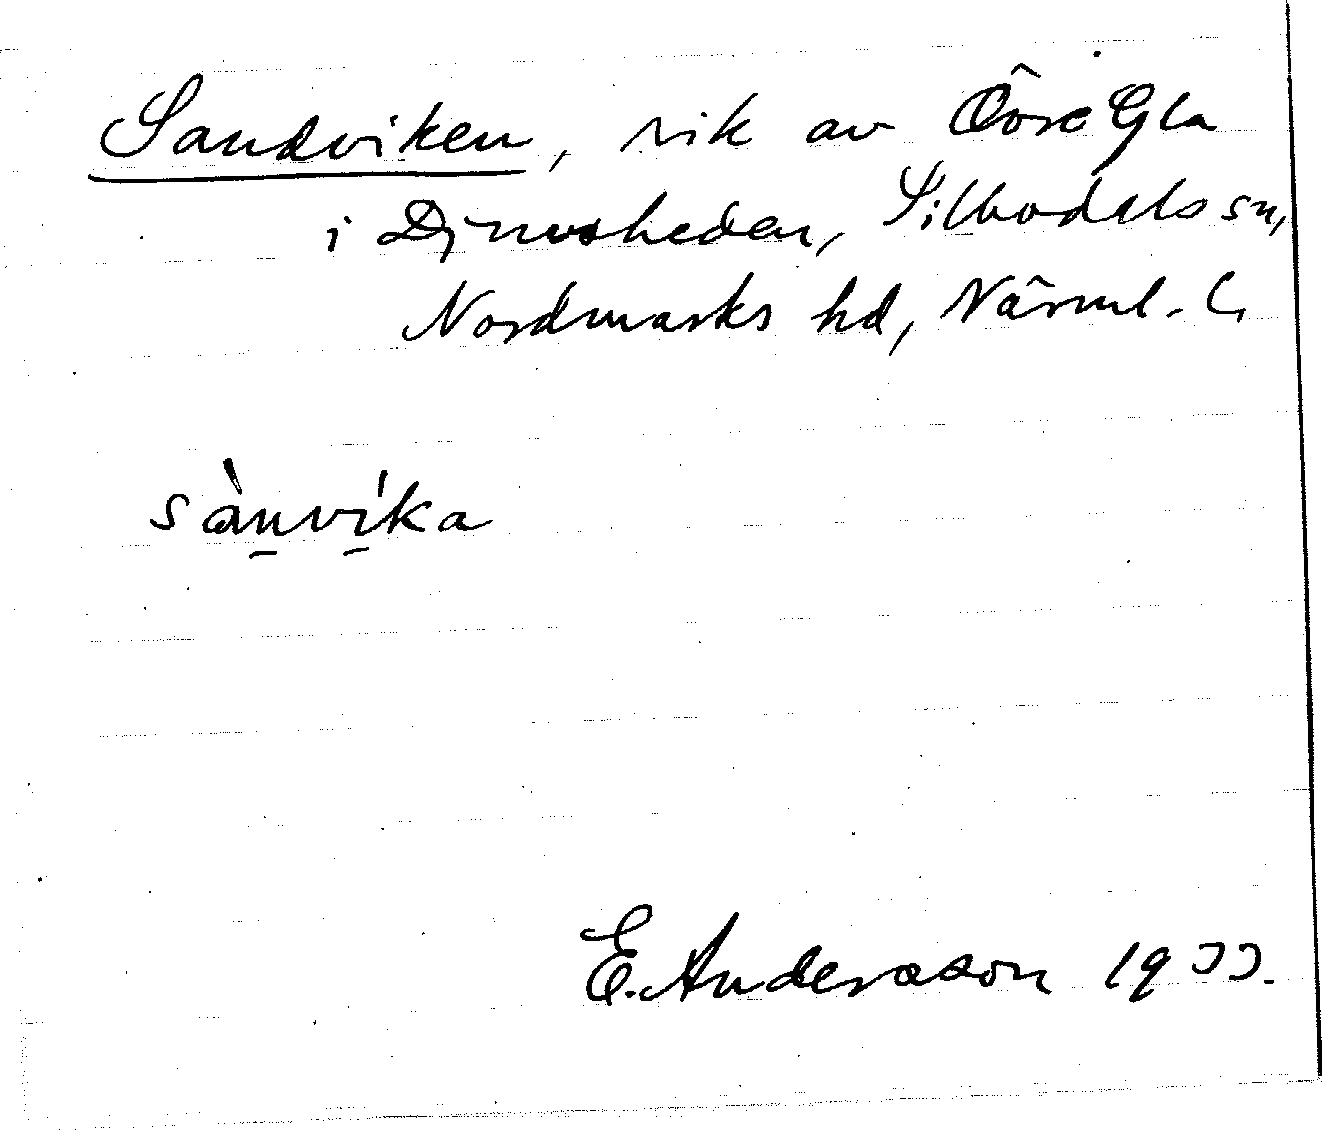 Sandviken, vik av Övre Gla
i Djuvsheden, Silbodals sn,
Nordmarks hd, Värml. l.
sànvíka
E. Andersson 1933.